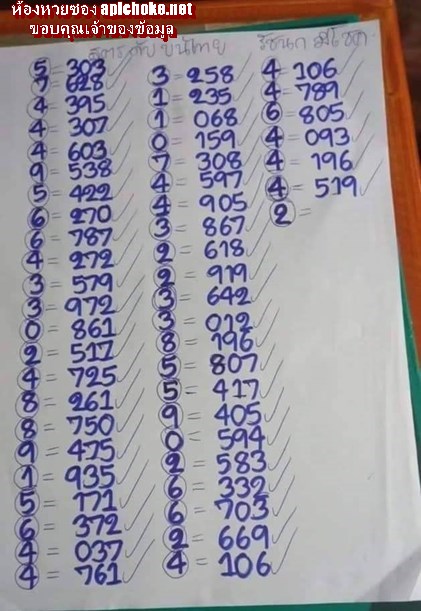 ห้องหวยซอง apichoke.net
ขอบคุณเจ้าของข้อมูล
สูตร รัชนก มีโชค
5 = 303
7 = 628
4 = 395
4 = 307
4 = 603
9 = 538
5 = 422
6 = 270
6 = 787
4 = 272
3 = 579
3 = 972
0 = 861
2 = 517
4 = 725
8 = 261
8 = 750
9 = 475
1 = 935
5 = 171
6 = 372
4 = 037
4 = 761
3 = 258
1 = 235
1 = 068
0 = 159
7 = 308
4 = 597
4 = 905
3 = 867
2 = 618
2 = 919
3 = 642
3 = 012
8 = 196
5 = 807
5 = 417
9 = 405
0 = 594
2 = 583
6 = 332
6 = 703
2 = 669
4 = 106
4 = 106
4 = 789
6 = 805
4 = 093
4 = 196
4 = 519
2 =